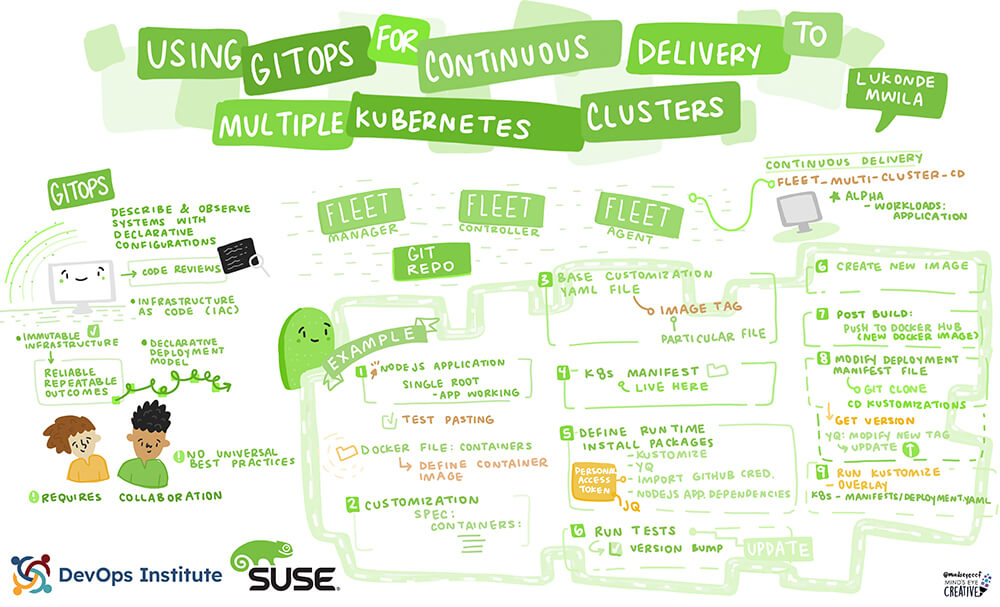 USING GITOPS FOR CONTINUOUS DELIVERY TO
MULTIPLE KUBERNETES CLUSTERS
LUKONDE
MWILA
GITOPS
DESCRIBE & OBSERVE
SYSTEMS WITH
DECLARATIVE
CONFIGURATIONS
CODE REVIEWS
• INFRASTRUCTURE
AS CODE (IAC)
• IMMUTABLE
INFRASTRUCTURE
RELIABLE
REPEATABLE
OUTCOMES
• DECLARATIVE
DEPLOYMENT
MODEL
! NO UNIVERSAL
BEST PRACTICES
! REQUIRES COLLABORATION
FLEET
MANAGER
FLEET
CONTROLLER
FLEET
AGENT
GIT
REPO
CONTINUOUS DELIVERY
FLEET_MULTI-CLUSTER-CD
ALPHA
- WORKLOADS:
APPLICATION
EXAMPLE
1 NODEJS APPLICATION
SINGLE ROOT
- APP WORKING
TEST PASTING
DOCKER FILE: CONTAINERS
DEFINE CONTAINER
IMAGE
2 CUSTOMIZATION
SPEC:
CONTAINERS:
3 BASE CUSTOMIZATION
YAML FILE
IMAGE TAG
PARTICULAR FILE
4 K8s MANIFEST
LIVE HERE
5 DEFINE RUNTIME
INSTALL PACKAGES
- KUSTOMIZE
- YQ
- IMPORT GITHUB CRED.
- NODEJS APP. DEPENDENCIES
PERSONAL
ACCESS
TOKEN
JQ
6 RUN TESTS
VERSION BUMP
UPDATE
6 CREATE NEW IMAGE
7 POST BUILD:
PUSH TO DOCKER HUB
(NEW DOCKER IMAGE)
8 MODIFY DEPLOYMENT
MANIFEST FILE
GIT CLONE
CD KUSTOMIZATIONS
GET VERSION
YQ: MODIFY NEW TAG
UPDATE
9 RUN KUSTOMIZE
- OVERLAY
K8s - MANIFESTS/DEPLOYMENT.YAML
DevOps Institute
SUSE®
MIND'S EYE
CREATIVE